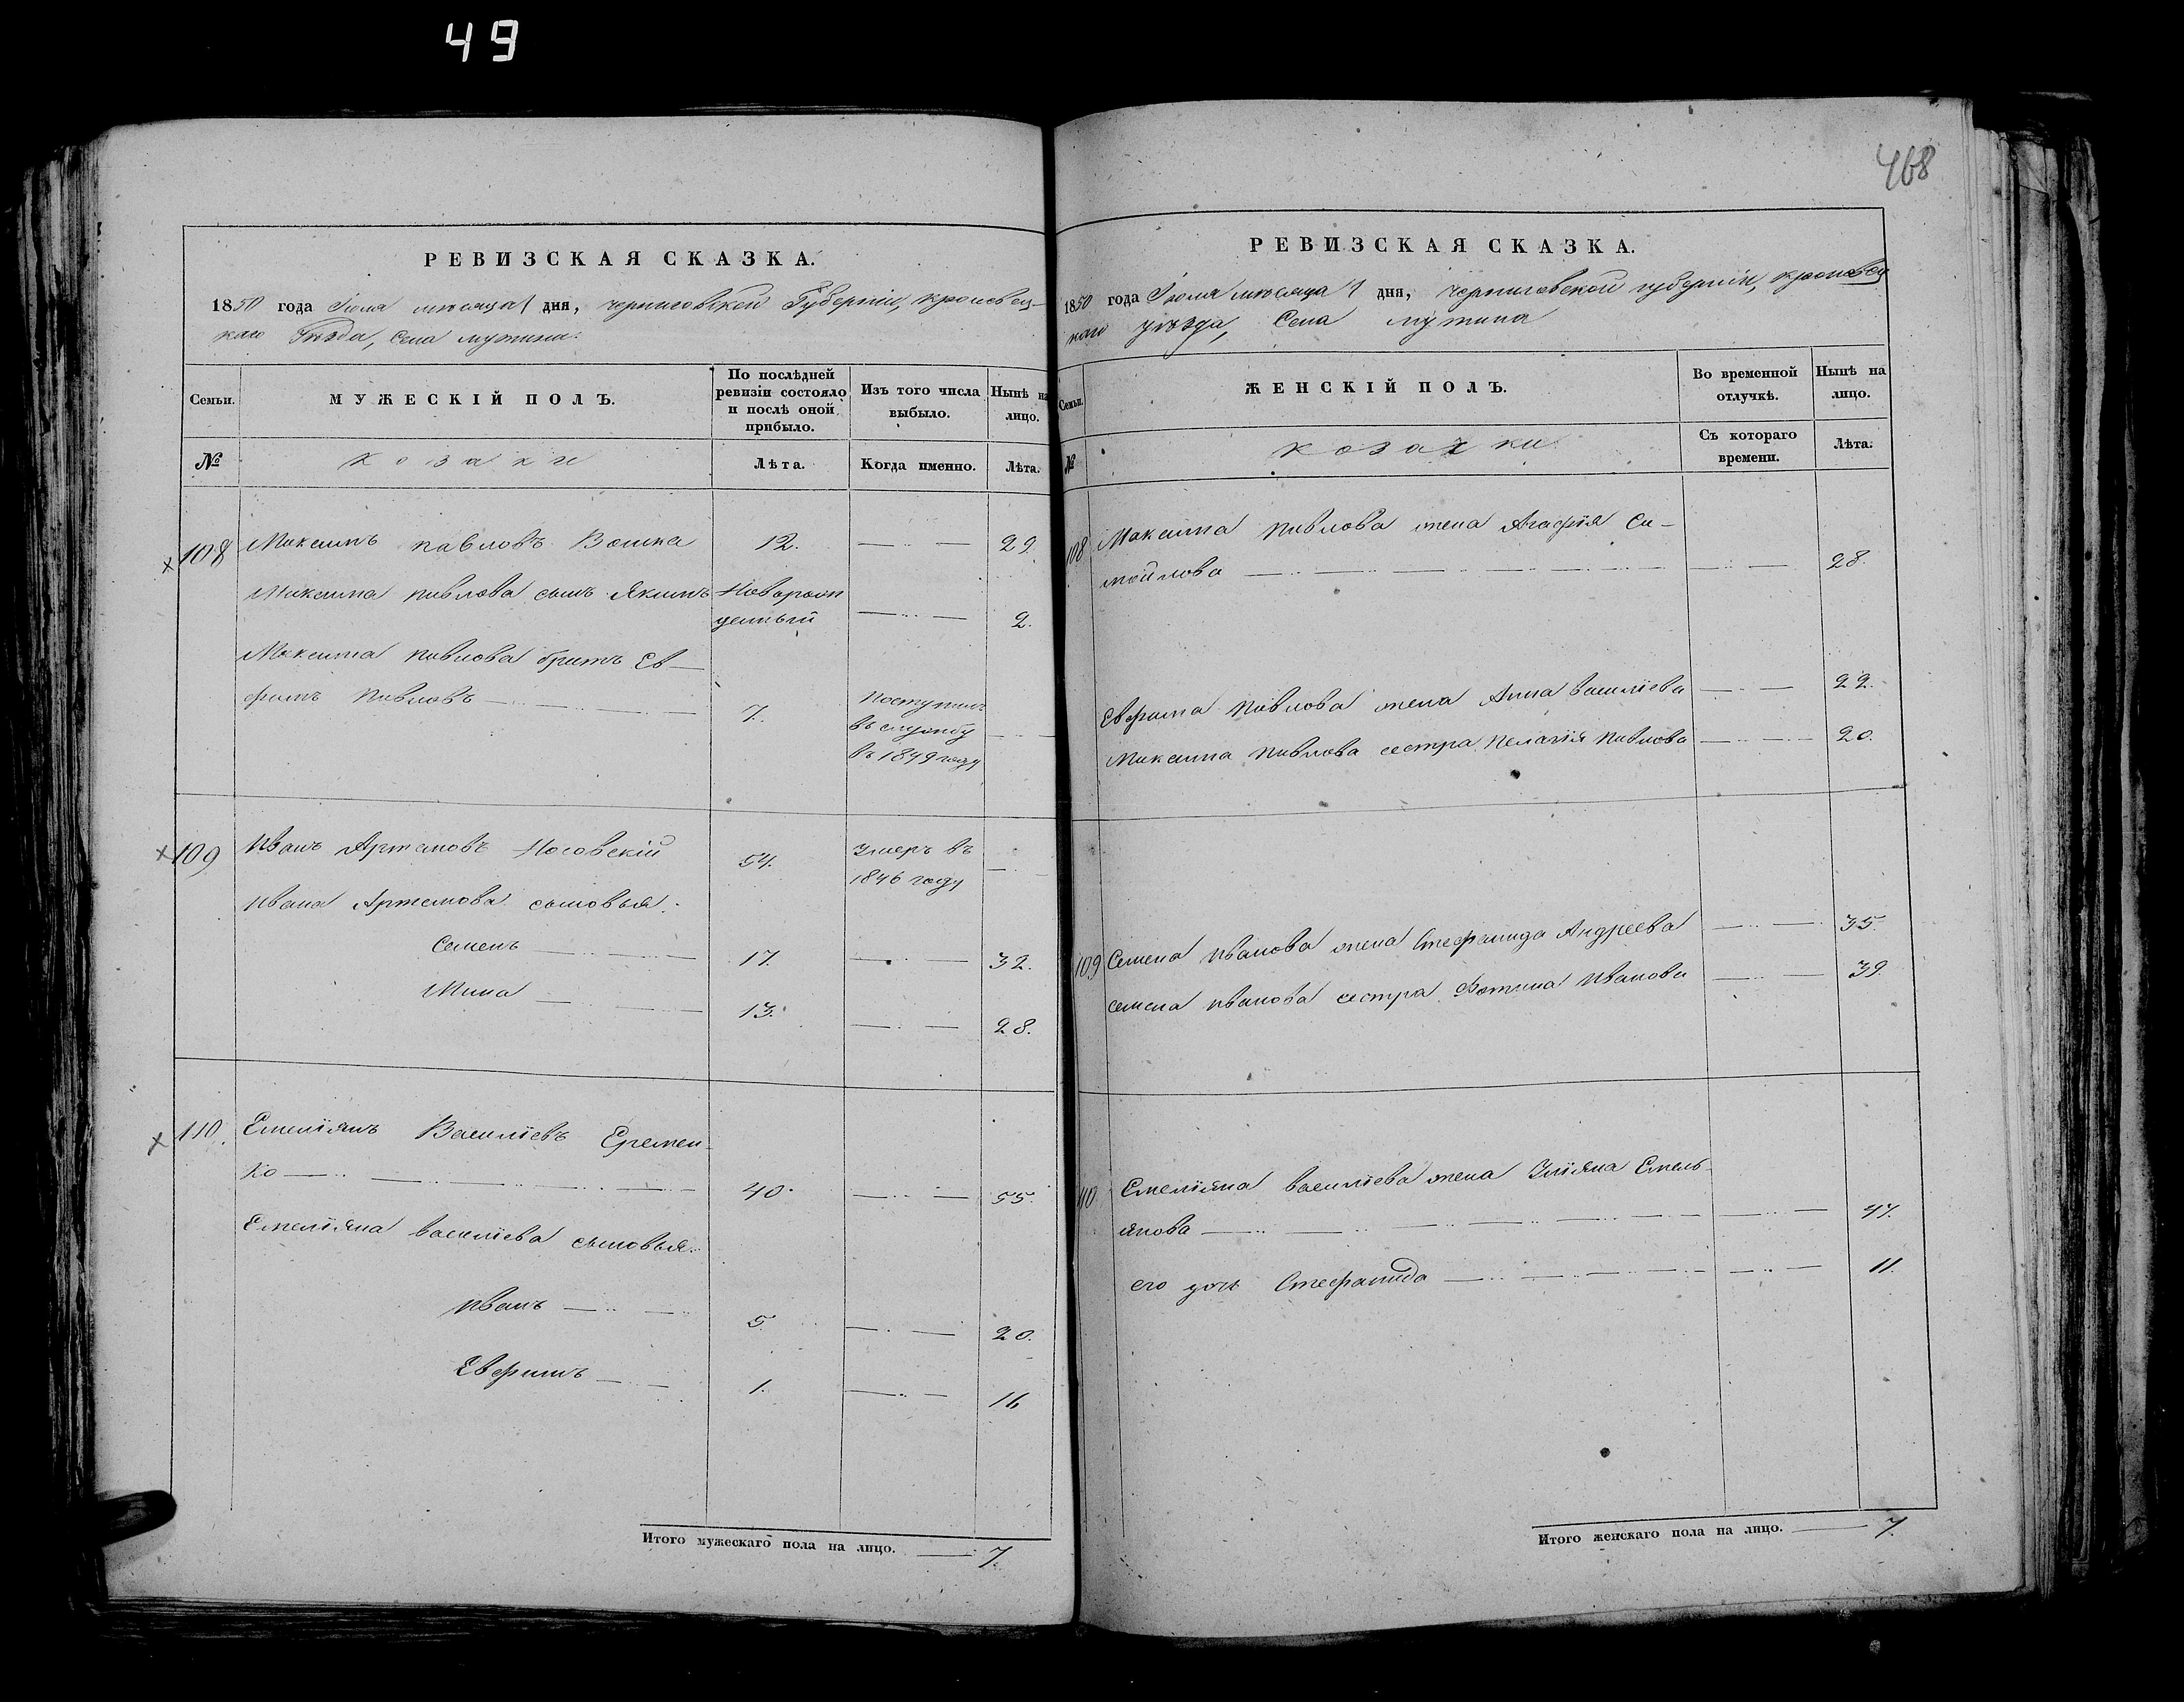 49
468
РЕВИЗСКАЯ СКАЗКА.
1850 года Іюля мѣсяца 1 дня, Черниговской Губерніи, Кролевец-
каго Уѣзда, Села Мутина.
Семьи.
МУЖЕСКІЙ ПОЛЪ.
По послѣдней
ревизіи состояло
и послѣ оной
прибыло.
Изъ того числа
выбыло.
Нынѣ на
лицо.
№
козаки
Лѣта.
Когда именно.
Лѣта.
108 Максимъ Павловъ Вошка 12. 29.
Максима Павлова сынъ Якимъ Новорож
денный 2.
Максима Павлова братъ Ев-
фимъ Павловъ 7. Поступилъ
въ службу
въ 1849 году
109 Иванъ Артемовъ Носовскій 54. Умеръ въ
1846 году
Ивана Артемова сыновья:
Семенъ 17. 32.
Мина 13. 28.
110. Емеліянъ Василіевъ Еремен-
ко 40. 55.
Емеліяна Василіева сыновья:
Иванъ 5. 20.
Евфимъ 1. 16
Итого мужескаго пола на лицо. 7.
РЕВИЗСКАЯ СКАЗКА.
1850 года Іюля мѣсяца 1 дня, Черниговской губерніи, Кролевец
каго уѣзда, Села Мутина
Семьи.
ЖЕНСКІЙ ПОЛЪ.
Во временной
отлучкѣ.
Нынѣ на
лицо.
№
козачки
Съ котораго
времени.
Лѣта.
108 Максима Павлова жена Агафія Са-
мойлова 28.
Евфима Павлова жена Анна Василіева 22.
Максима Павлова сестра Пелагія Павлова 20.
109 Семена Иванова жена Стефанида Андреева 35.
Семена Иванова сестра Фотина Иванова 39.
110 Емеліяна Василіева жена Уліяна Емель-
янова 47.
его дочь Стефанида 11.
Итого женскаго пола на лицо. 7.